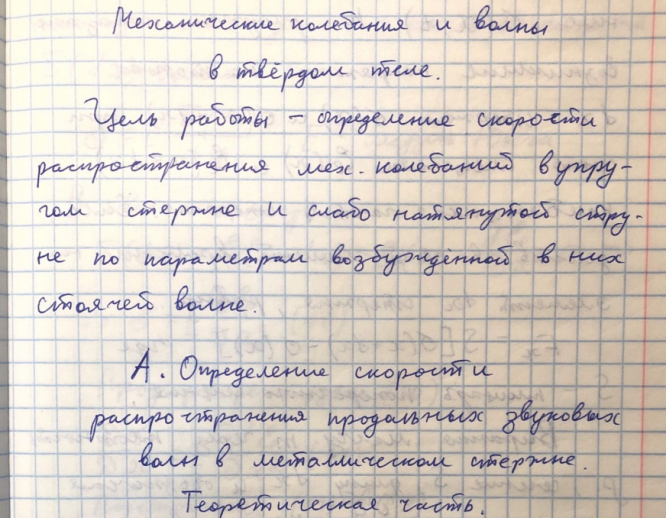 Механические колебания и волны
в твёрдом теле.
Цель работы – определение скорости
распространения мех. колебаний в упру-
гом стержне и слабо натянутой стру-
не по параметрам возбуждённой в них
стоячей волне.
А. Определение скорости
распространения продальных звуковых
волн в металлическом стержне.
Теоретическая часть.